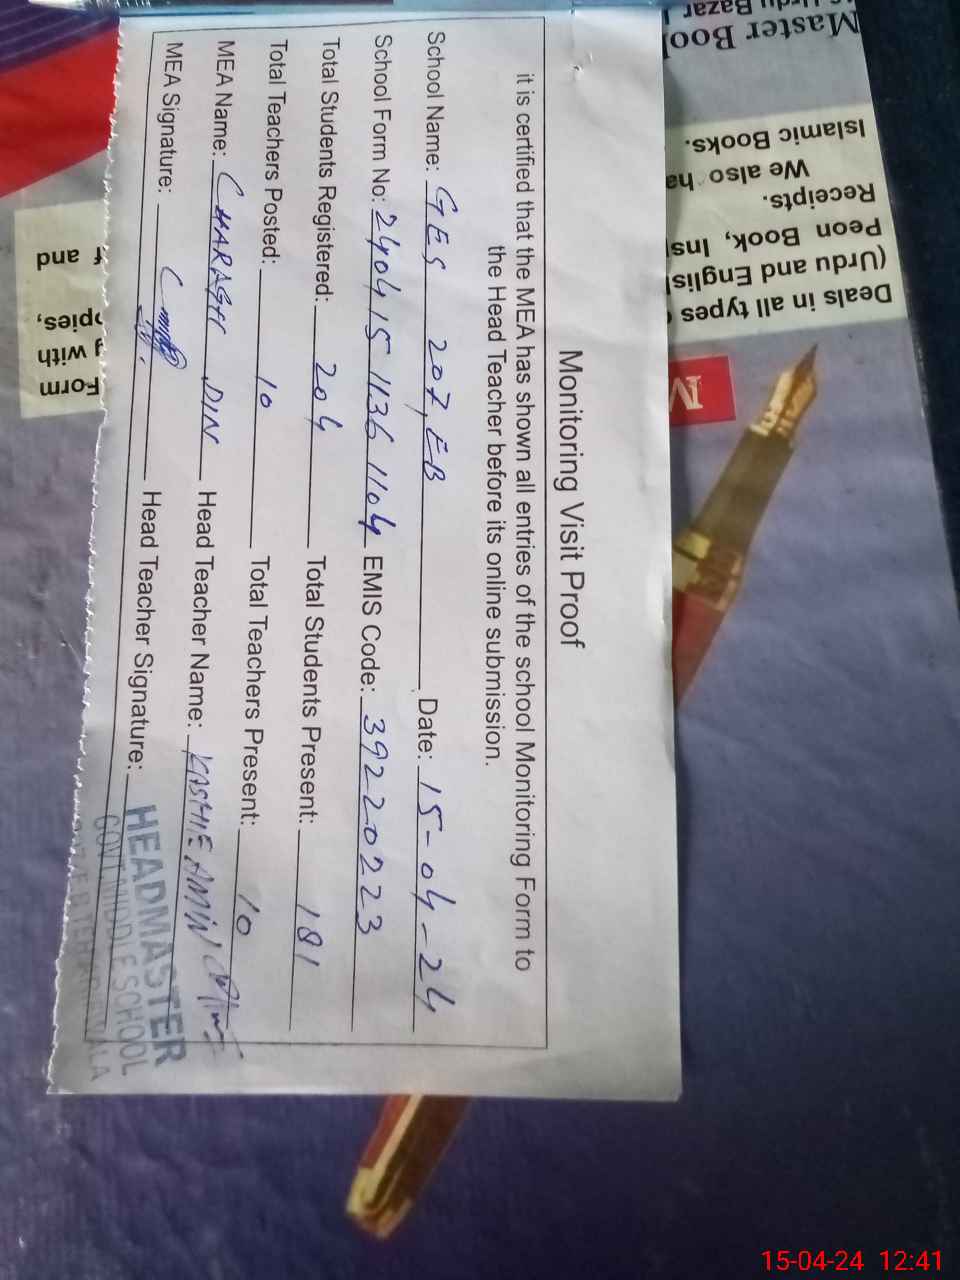 Monitoring Visit Proof
it is certified that the MEA has shown all entries of the school Monitoring Form to
the Head Teacher before its online submission.
School Name: GES 207, EB Date: 15-04-24
School Form No: 2404151136 1104 EMIS Code: 39220223
Total Students Registered: 204 Total Students Present: 181
Total Teachers Posted: 10 Total Teachers Present: 10
MEA Name: CHARAGH DIN Head Teacher Name: KASHIF AMIN
MEA Signature: Head Teacher Signature:
HEADMASTER
GOVT. MIDDLE SCHOOL
Master
Urdu Bazar
Islamic Books.
We also
Receipts.
Peon Book,
(Urdu and
Deals in all types
M
and
with
Form
15-04-24 12:41